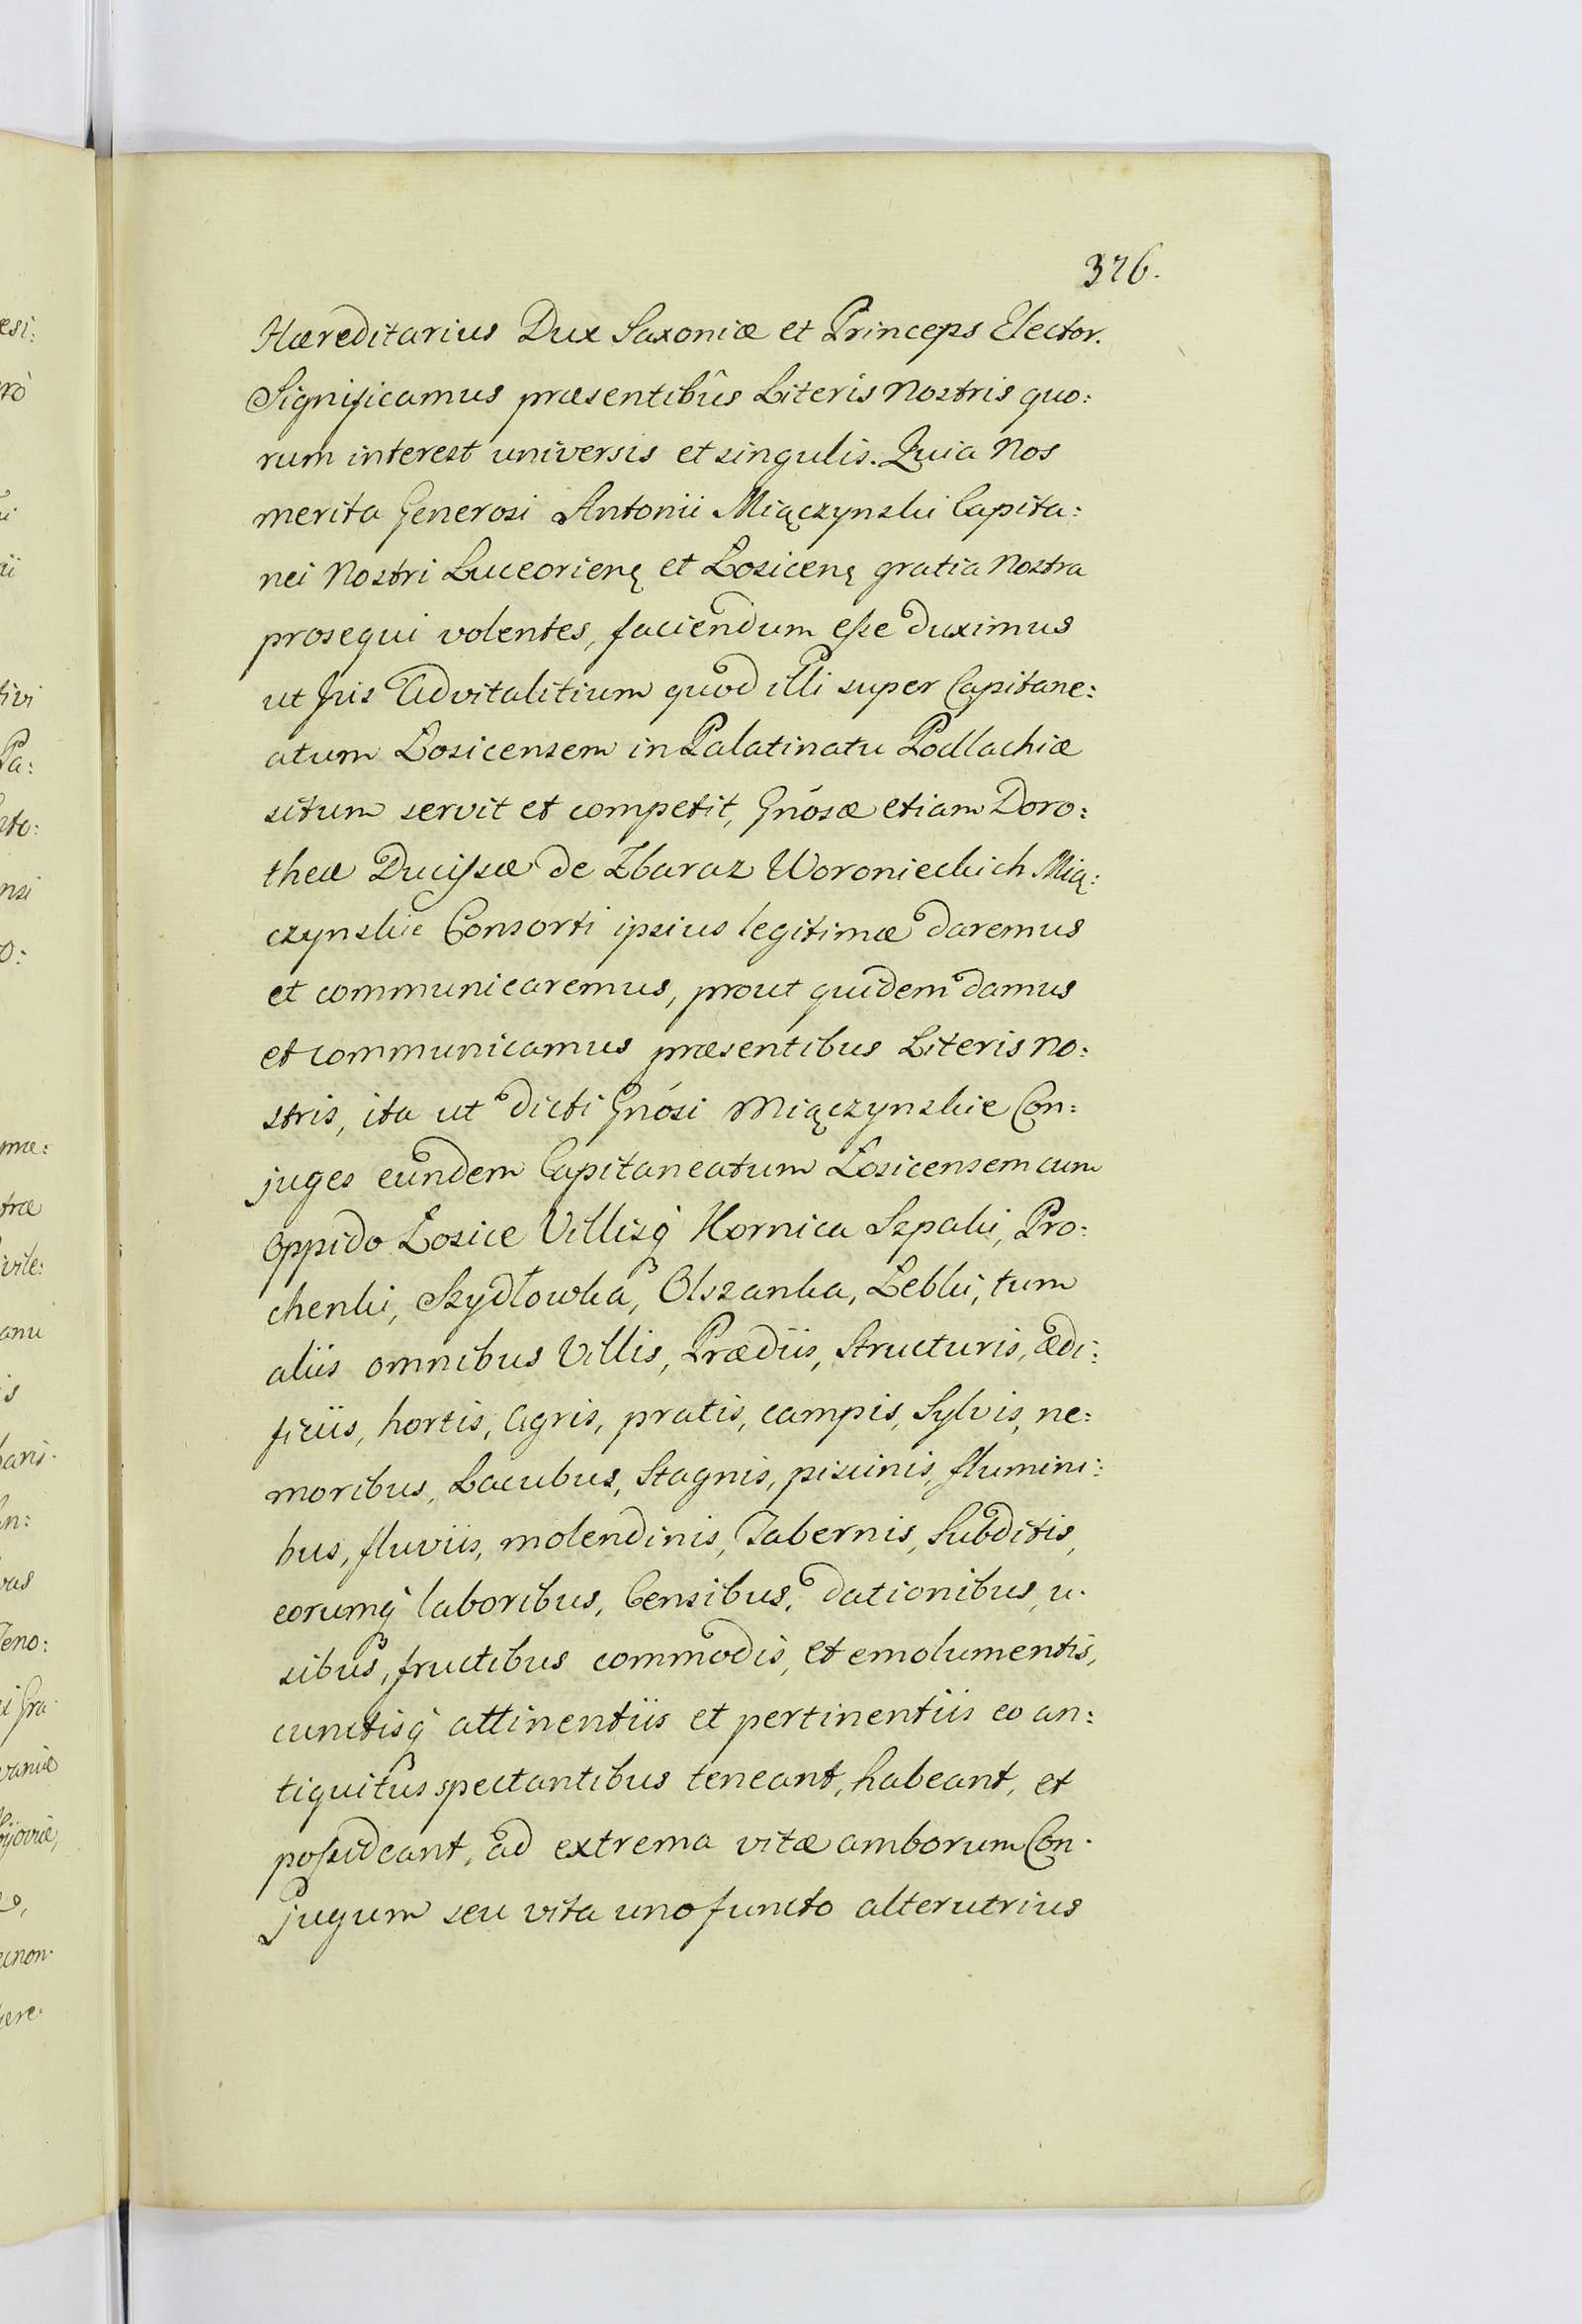 376.
Hæreditarius Dux Saxoniæ et Princeps Elector.
Significamus præsentibûs Literis Nostris quo:
rum interest universis et singulis. Quia Nos
merita Generosi Antonii Miączynski Capita:
nei Nostri Luceorienę et Losicenę gratia Nostra
prosequi volentes, faciendum esse duximus
ut Jus Advitalitium quod illi super Capitane:
atum Losicensem in Palatinatu Podlachiæ
situm servit et competit, Gnósæ etiam Doro:
theæ Ducissæ de Zbaraz Woronieckich Mią:
czynskie Consorti ipsius legitimæ daremus
et communicaremus, prout quidem damus
et communicamus præsentibus Literis No:
stris, ita ut dicti Gnósi Miączynskie Con:
juges eundem Capitaneatum Losicensem cum
Oppido Losice Villisq́ Hornica Szpaki, Pro:
chenki, Szydłowka, Olszanka, Lebki, tum
aliis omnibus Villis, Prædiis, Structuris, ædi:
ficiis, hortis, Agris, pratis, campis, Sylvis, ne:
moribus, Lacubus, Stagnis, piscinis, flumini:
bus, fluviis, molendinis, Tabernis, Subditis,
eorumq́ laboribus, Censibus, dationibus, u.
sibus, fructibus commodis, et emolumentis,
cunctisq́ attinentiis et pertinentiis eo an:
tiquitus spectantibus teneant, habeant, et
possideant, ad extrema vitæ amborum Con.
jugum seu vita uno functo alterutrius